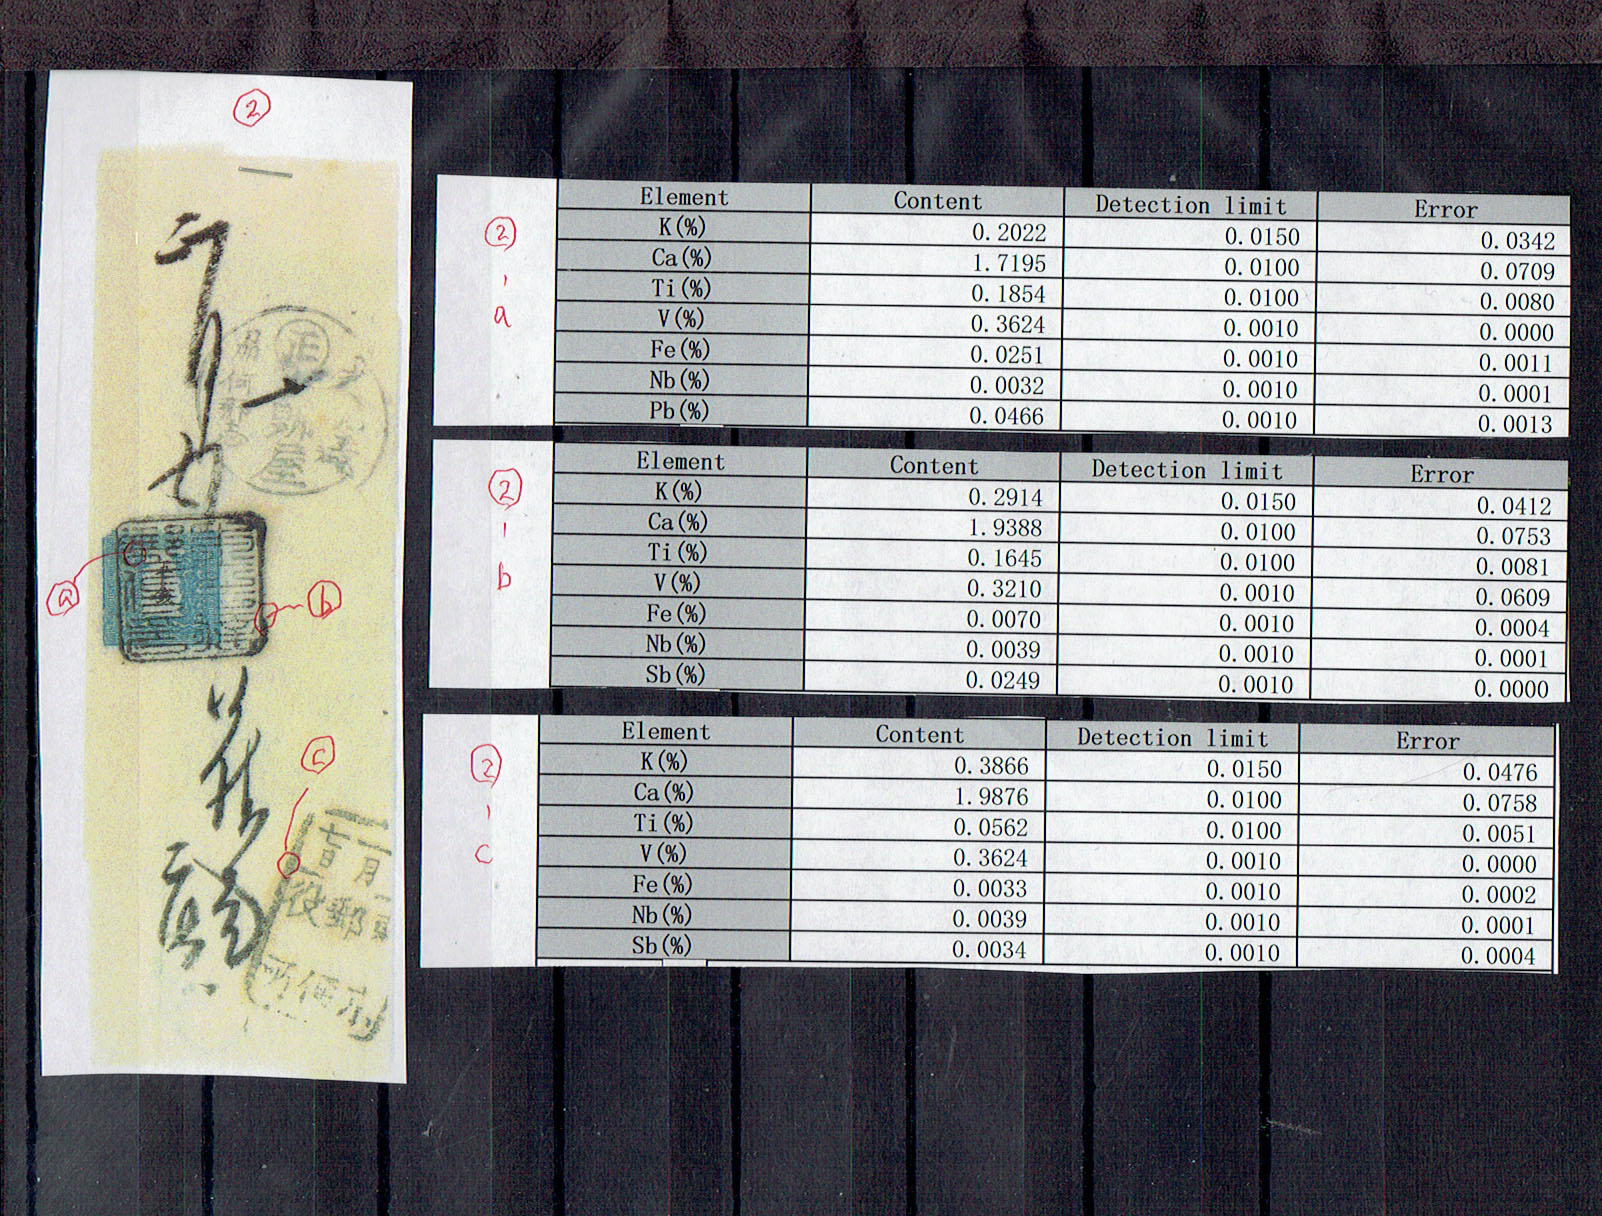 ②
ⓐ
ⓑ
ⓒ
二月
吉
役郵
②
,
a
Element Content Detection limit Error
K(%) 0.2022 0.0150 0.0342
Ca(%) 1.7195 0.0100 0.0709
Ti(%) 0.1854 0.0100 0.0080
V(%) 0.3624 0.0010 0.0000
Fe(%) 0.0251 0.0010 0.0011
Nb(%) 0.0032 0.0010 0.0001
Pb(%) 0.0466 0.0010 0.0013
②
,
b
Element Content Detection limit Error
K(%) 0.2914 0.0150 0.0412
Ca(%) 1.9388 0.0100 0.0753
Ti(%) 0.1645 0.0100 0.0081
V(%) 0.3210 0.0010 0.0609
Fe(%) 0.0070 0.0010 0.0004
Nb(%) 0.0039 0.0010 0.0001
Sb(%) 0.0249 0.0010 0.0000
②
,
c
Element Content Detection limit Error
K(%) 0.3866 0.0150 0.0476
Ca(%) 1.9876 0.0100 0.0758
Ti(%) 0.0562 0.0100 0.0051
V(%) 0.3624 0.0010 0.0000
Fe(%) 0.0033 0.0010 0.0002
Nb(%) 0.0039 0.0010 0.0001
Sb(%) 0.0034 0.0010 0.0004